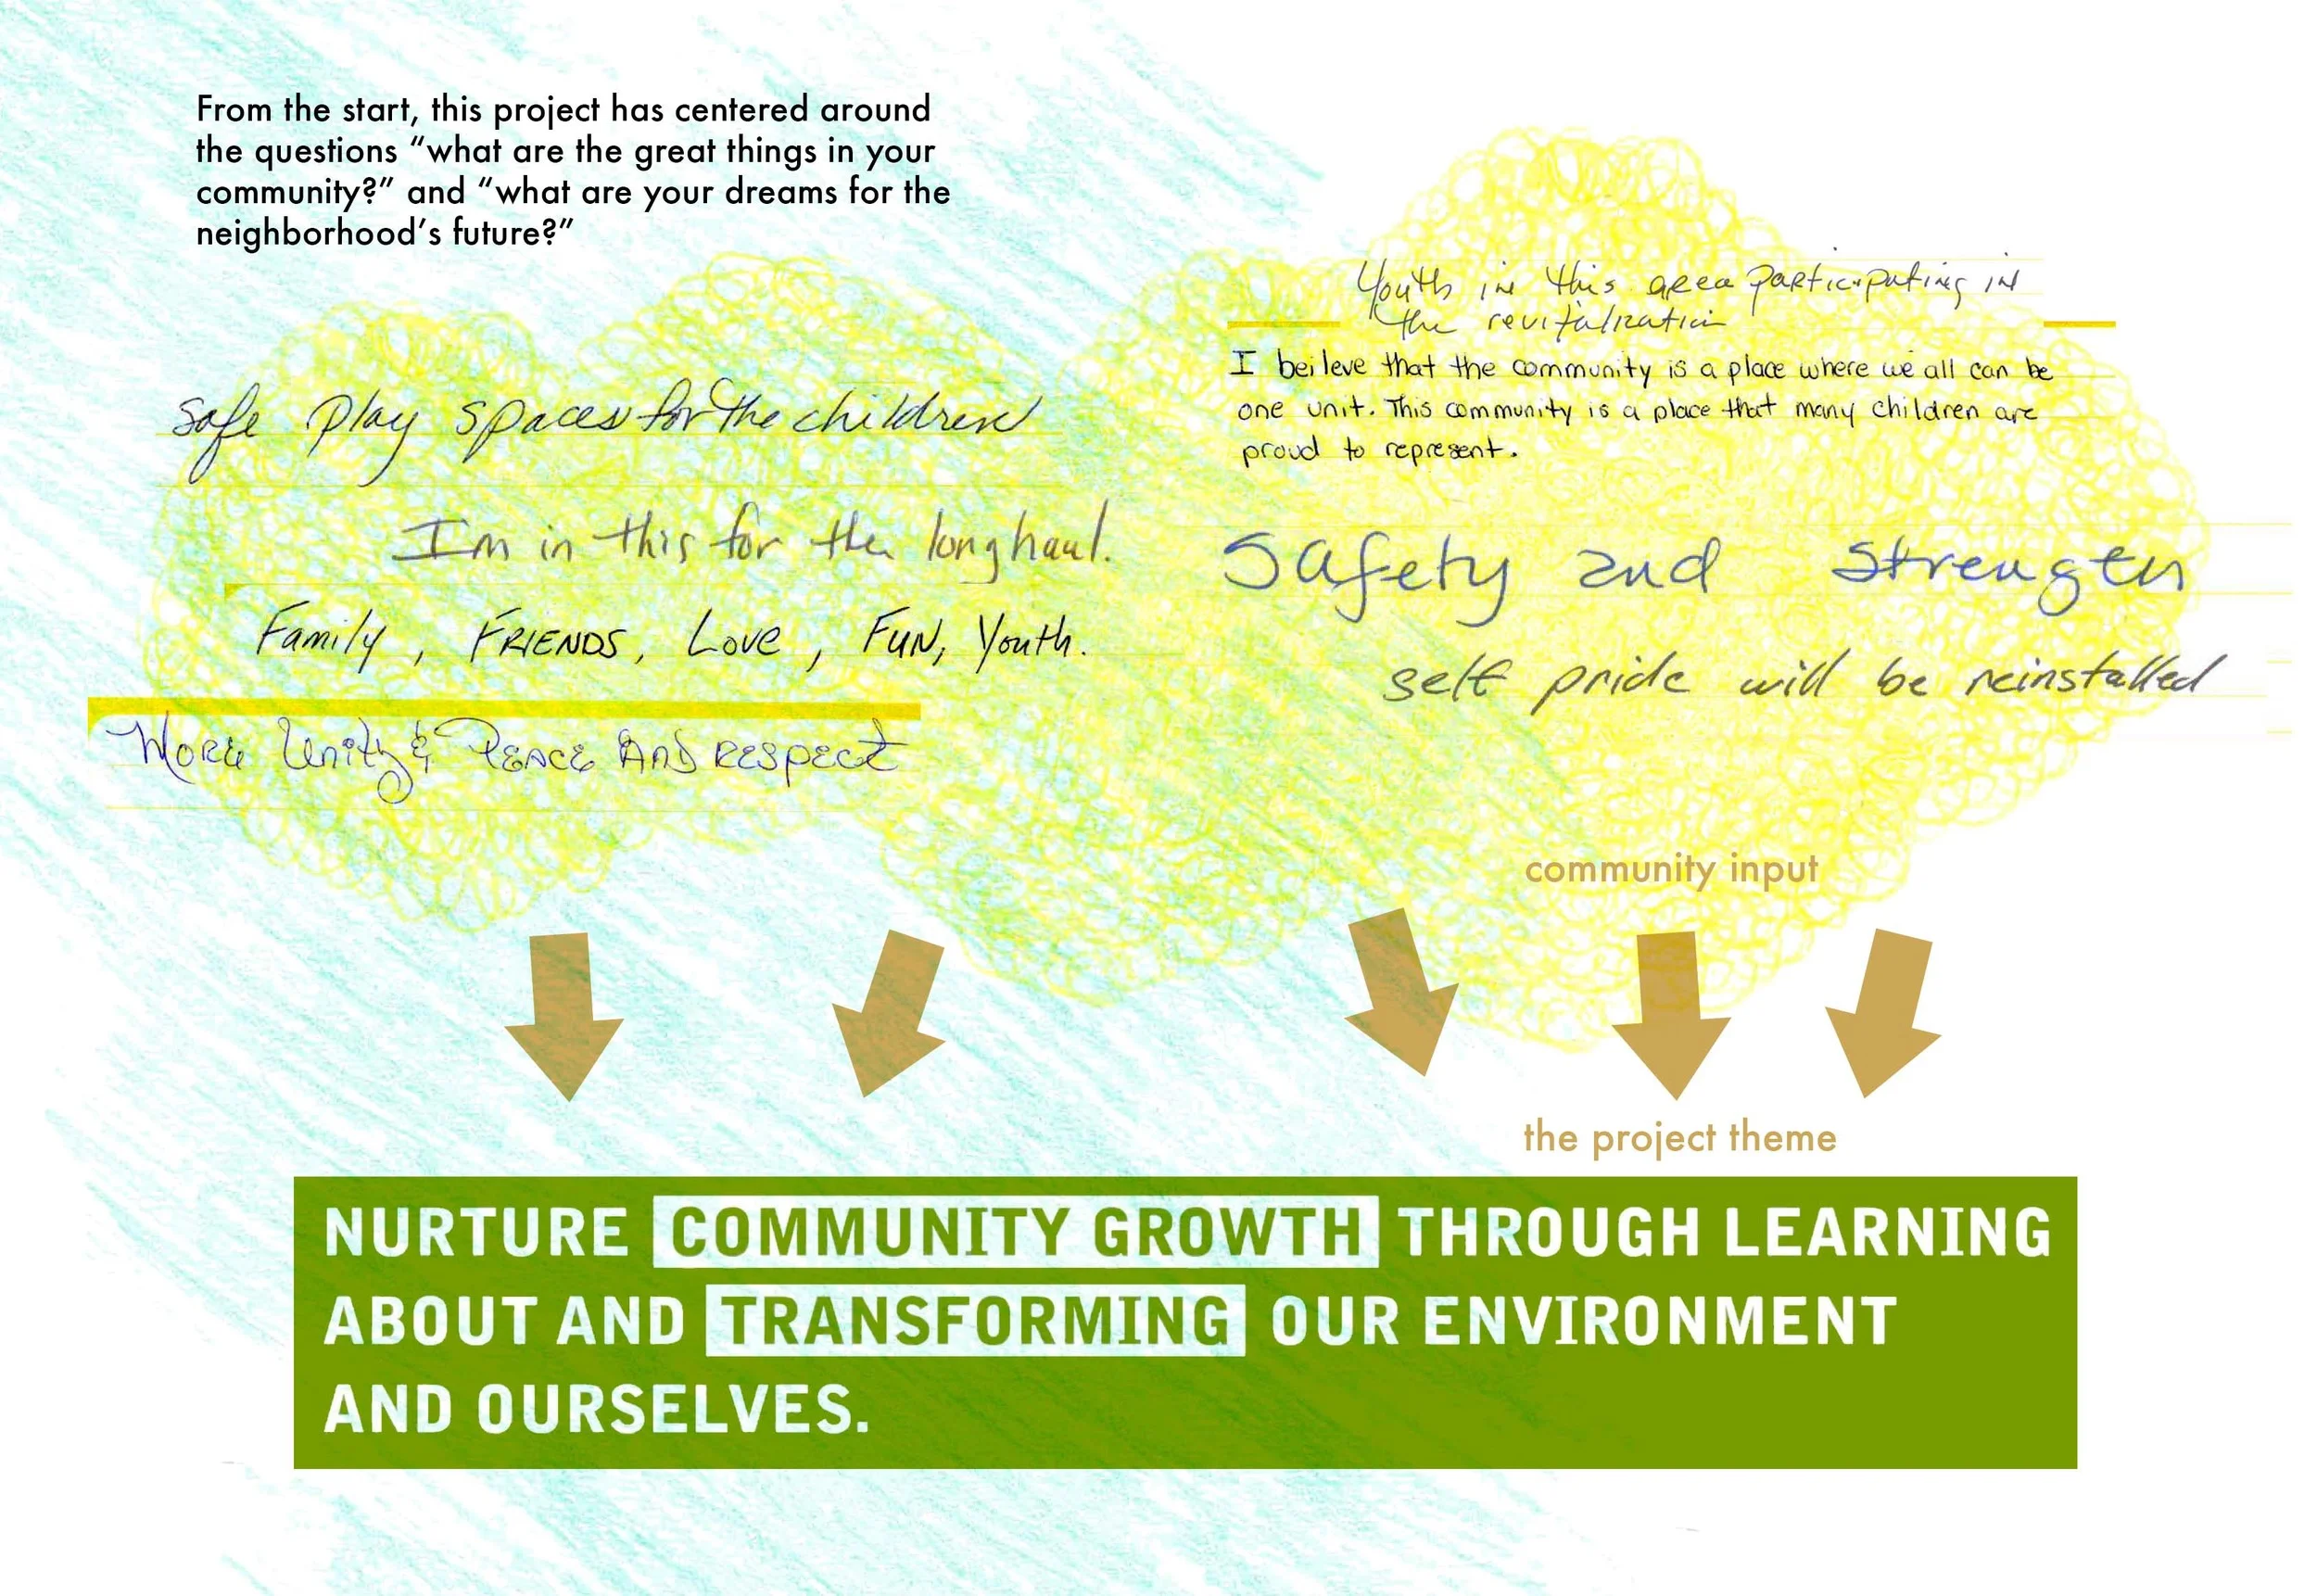 From the start, this project has centered around
the questions “what are the great things in your
community?” and “what are your dreams for the
neighborhood’s future?”
safe play spaces for the children
I'm in this for the long haul.
Family, FRIENDS, Love, FUN, Youth.
More Unity & Peace And respect
Youth in this area participating in
the revitalization
I beileve that the community is a place where we all can be
one unit. This community is a place that many children are
proud to represent.
Safety and Strength
self pride will be reinstalled
community input
the project theme
NURTURE COMMUNITY GROWTH THROUGH LEARNING
ABOUT AND TRANSFORMING OUR ENVIRONMENT
AND OURSELVES.